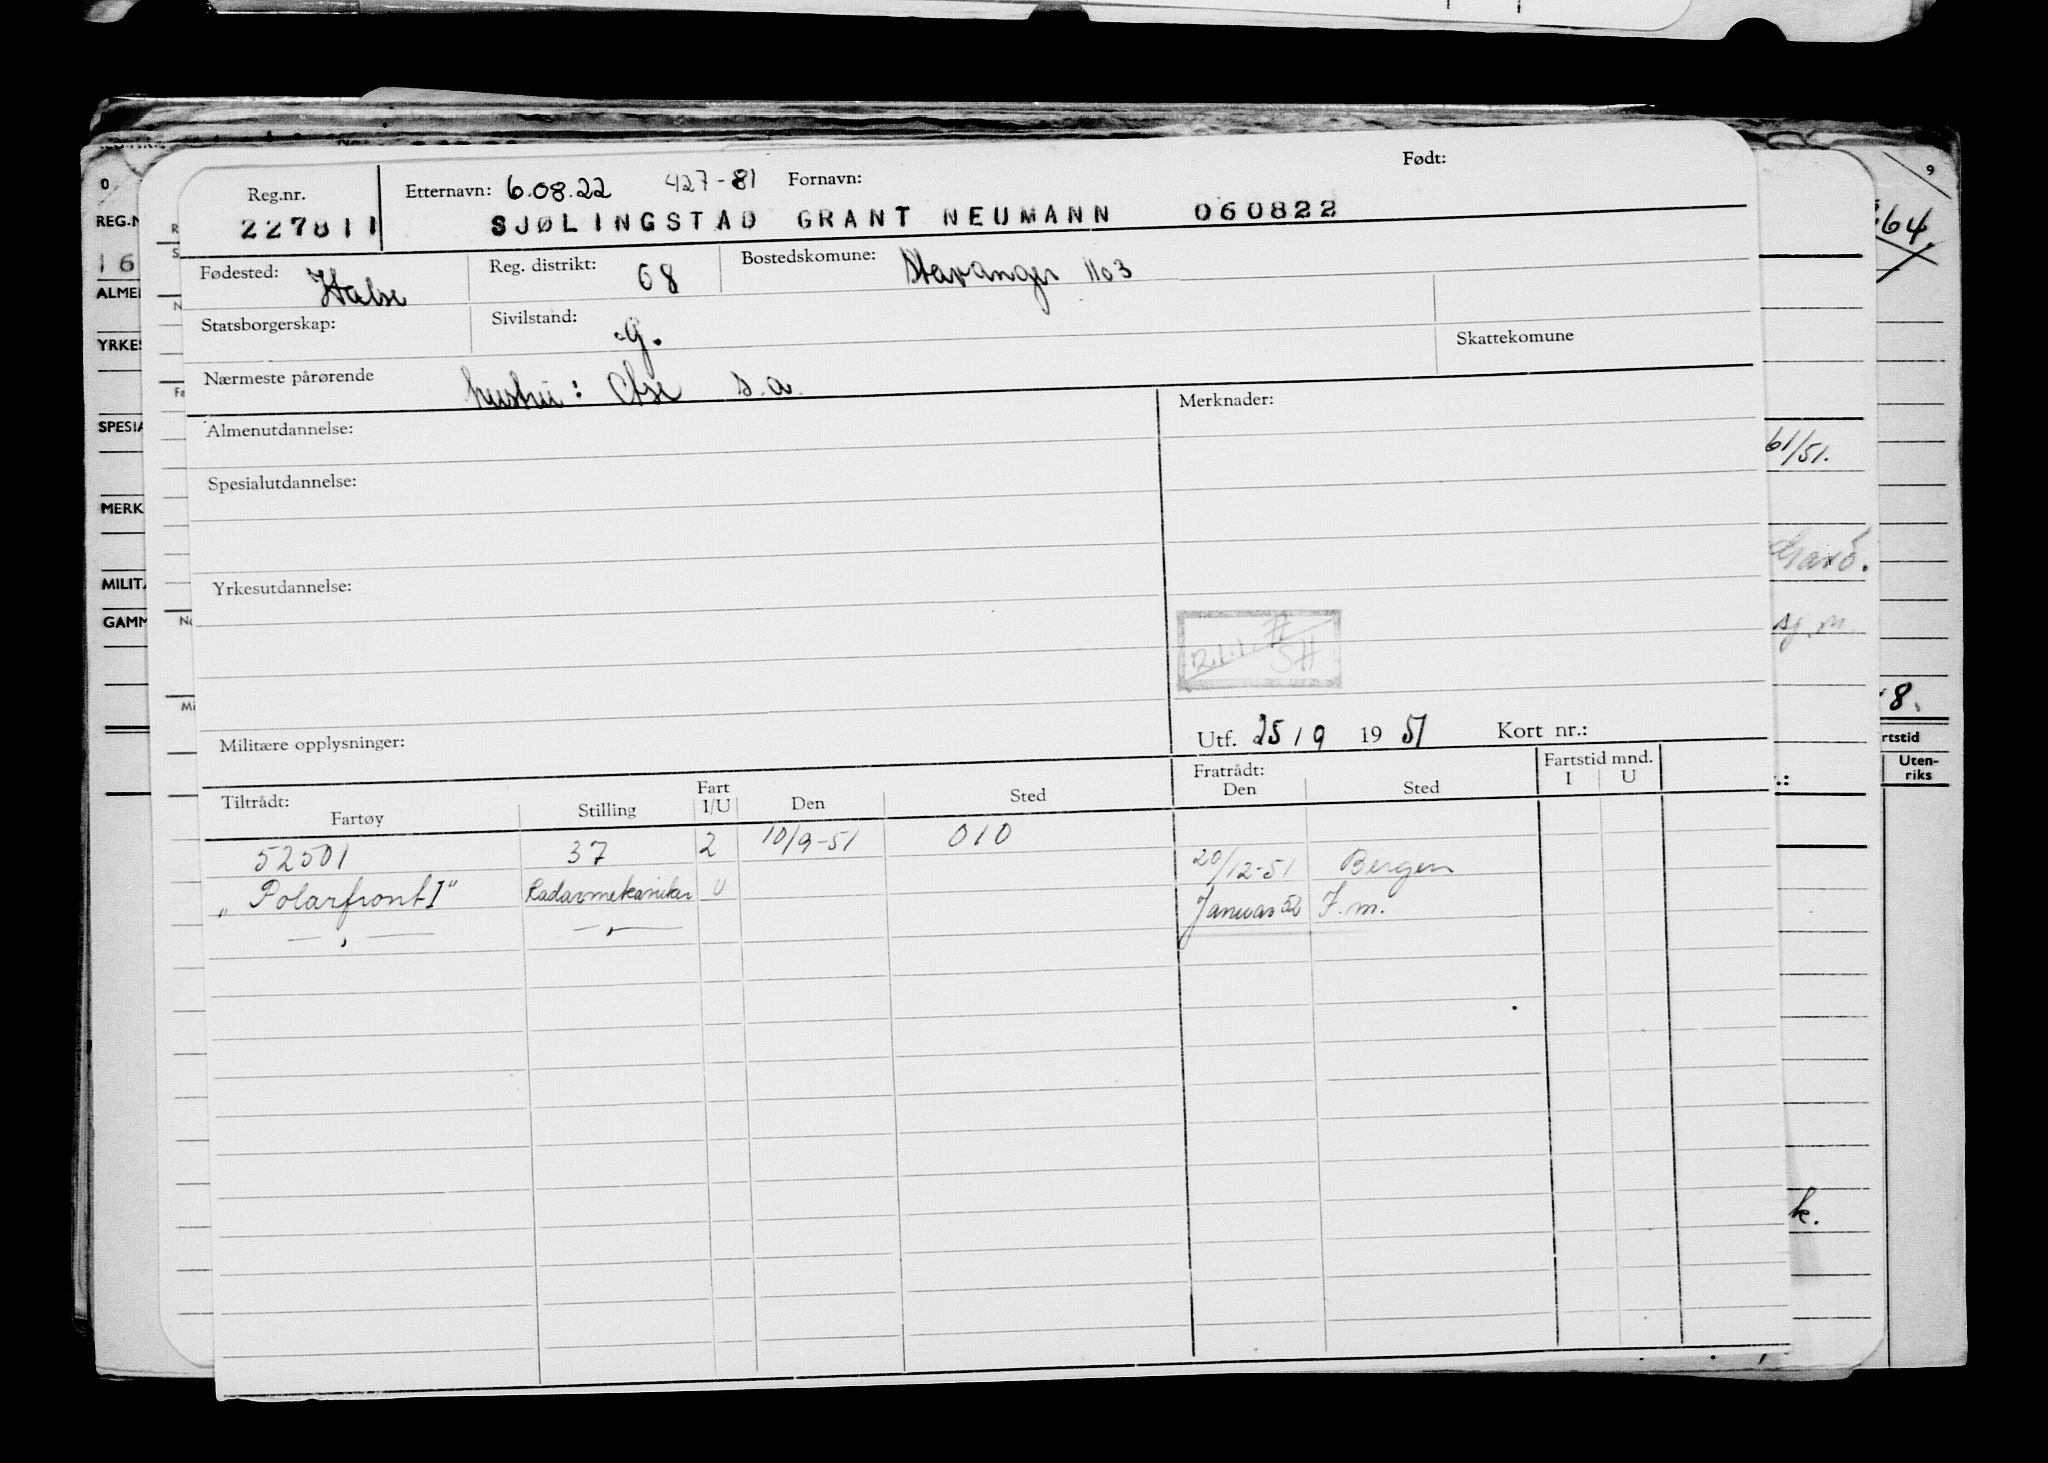 Født:
Reg.nr. Etternavn: 6.08.22 427-81 Fornavn:
227811 SJØLINGSTAD GRANT NEUMANN 060822
Fødested: Halse Reg. distrikt: 08 Bostedskomune: Stavanger 1103
Statsborgerskap: Sivilstand: G.
Skattekomune
Nærmeste pårørende hustru: Else s.a.
Merknader:
Almenutdannelse:
Spesialutdannelse:
Yrkesutdannelse:
Militære opplysninger:
Utf. 25/9 1951 Kort nr.:
Tiltrådt: Fratrådt: Fartstid mnd.
Fartøy Stilling Fart I/U Den Sted Den Sted I U
52501 37 2 10/9-51 010
"Polarfront I" Radarmekaniker U 20/12-51 Bergen
— " — — " — Januar 52 F.m.
0
REG.N
16
ALME
YRKES
SPESIA
MERK
MILITA
GAMM
9
64.
61/51.
sj.m.
8.
rtstid
Uten-
riks
k.